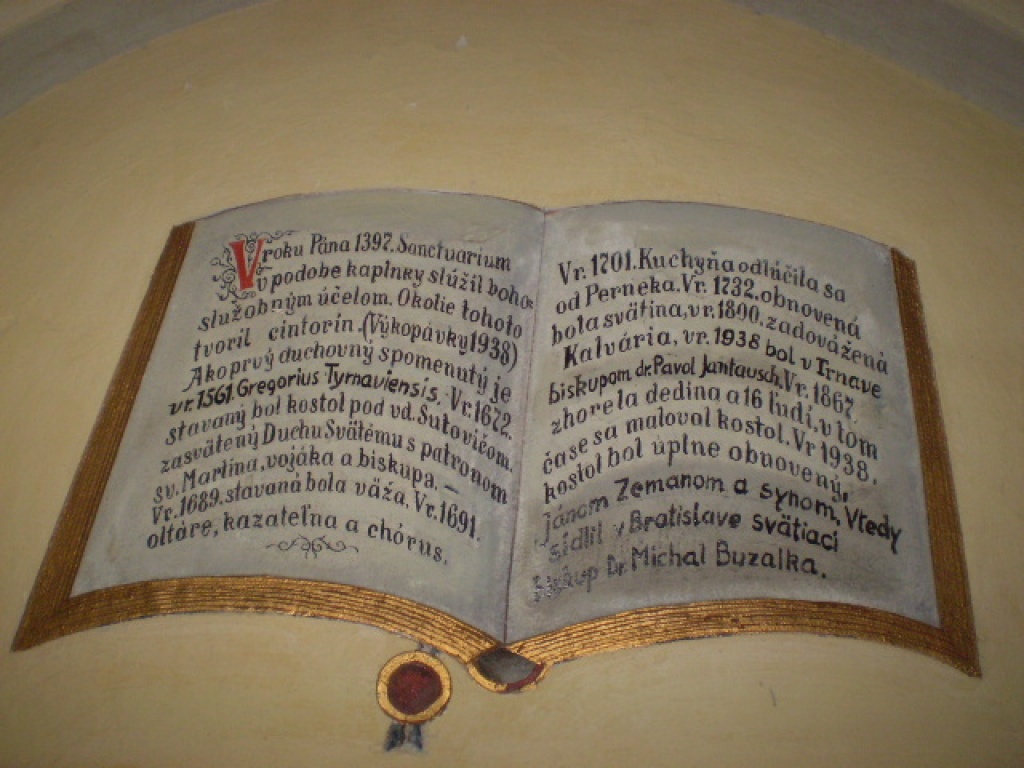 V roku Pána 1397. Sanctvarium
v podobe kaplnky slúžil boho-
služobným účelom. Okolie tohoto
tvoril cintorín. (Výkopávky 1938)
Ako prvý duchovný spomenutý je
vr. 1561. Gregorius Tyrnaviensis. Vr. 1672.
stavaný bol kostol pod vd. Sutovičom.
zasvätený Duchu Svätému s patronom
sv. Martina, vojáka a biskupa. —
Vr. 1689. stavaná bola väža. Vr. 1691.
oltáre, kazateľna a chórus.
Vr. 1701. Kuchyňa odlúčila sa
od Perneka. Vr. 1732. obnovená
bola svätina, vr. 1800. zadovážená
Kalvária, vr. 1938 bol v Trnave
biskupom dr. Pavol Jantausch. Vr. 1867.
zhorela dedina a 16 ľudí, v tom
čase sa maloval kostol. Vr 1938.
kostol bol úplne obnovený,
Jánom Zemanom a synom, Vtedy
sídlil v Bratislave svätiaci
biskup Dr. Michal Buzalka.